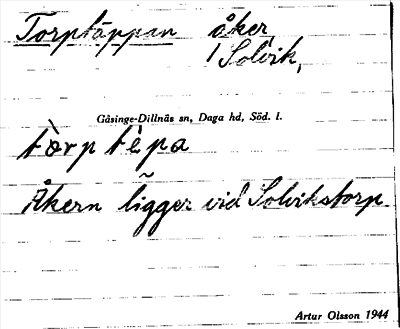 Torptäppan åker,
1 Solvik,
Gåsinge-Dillnäs sn, Daga hd, Söd. l.
tòrp tèpa
Åkern ligger vid Solvikstorp
Artur Olsson 1944